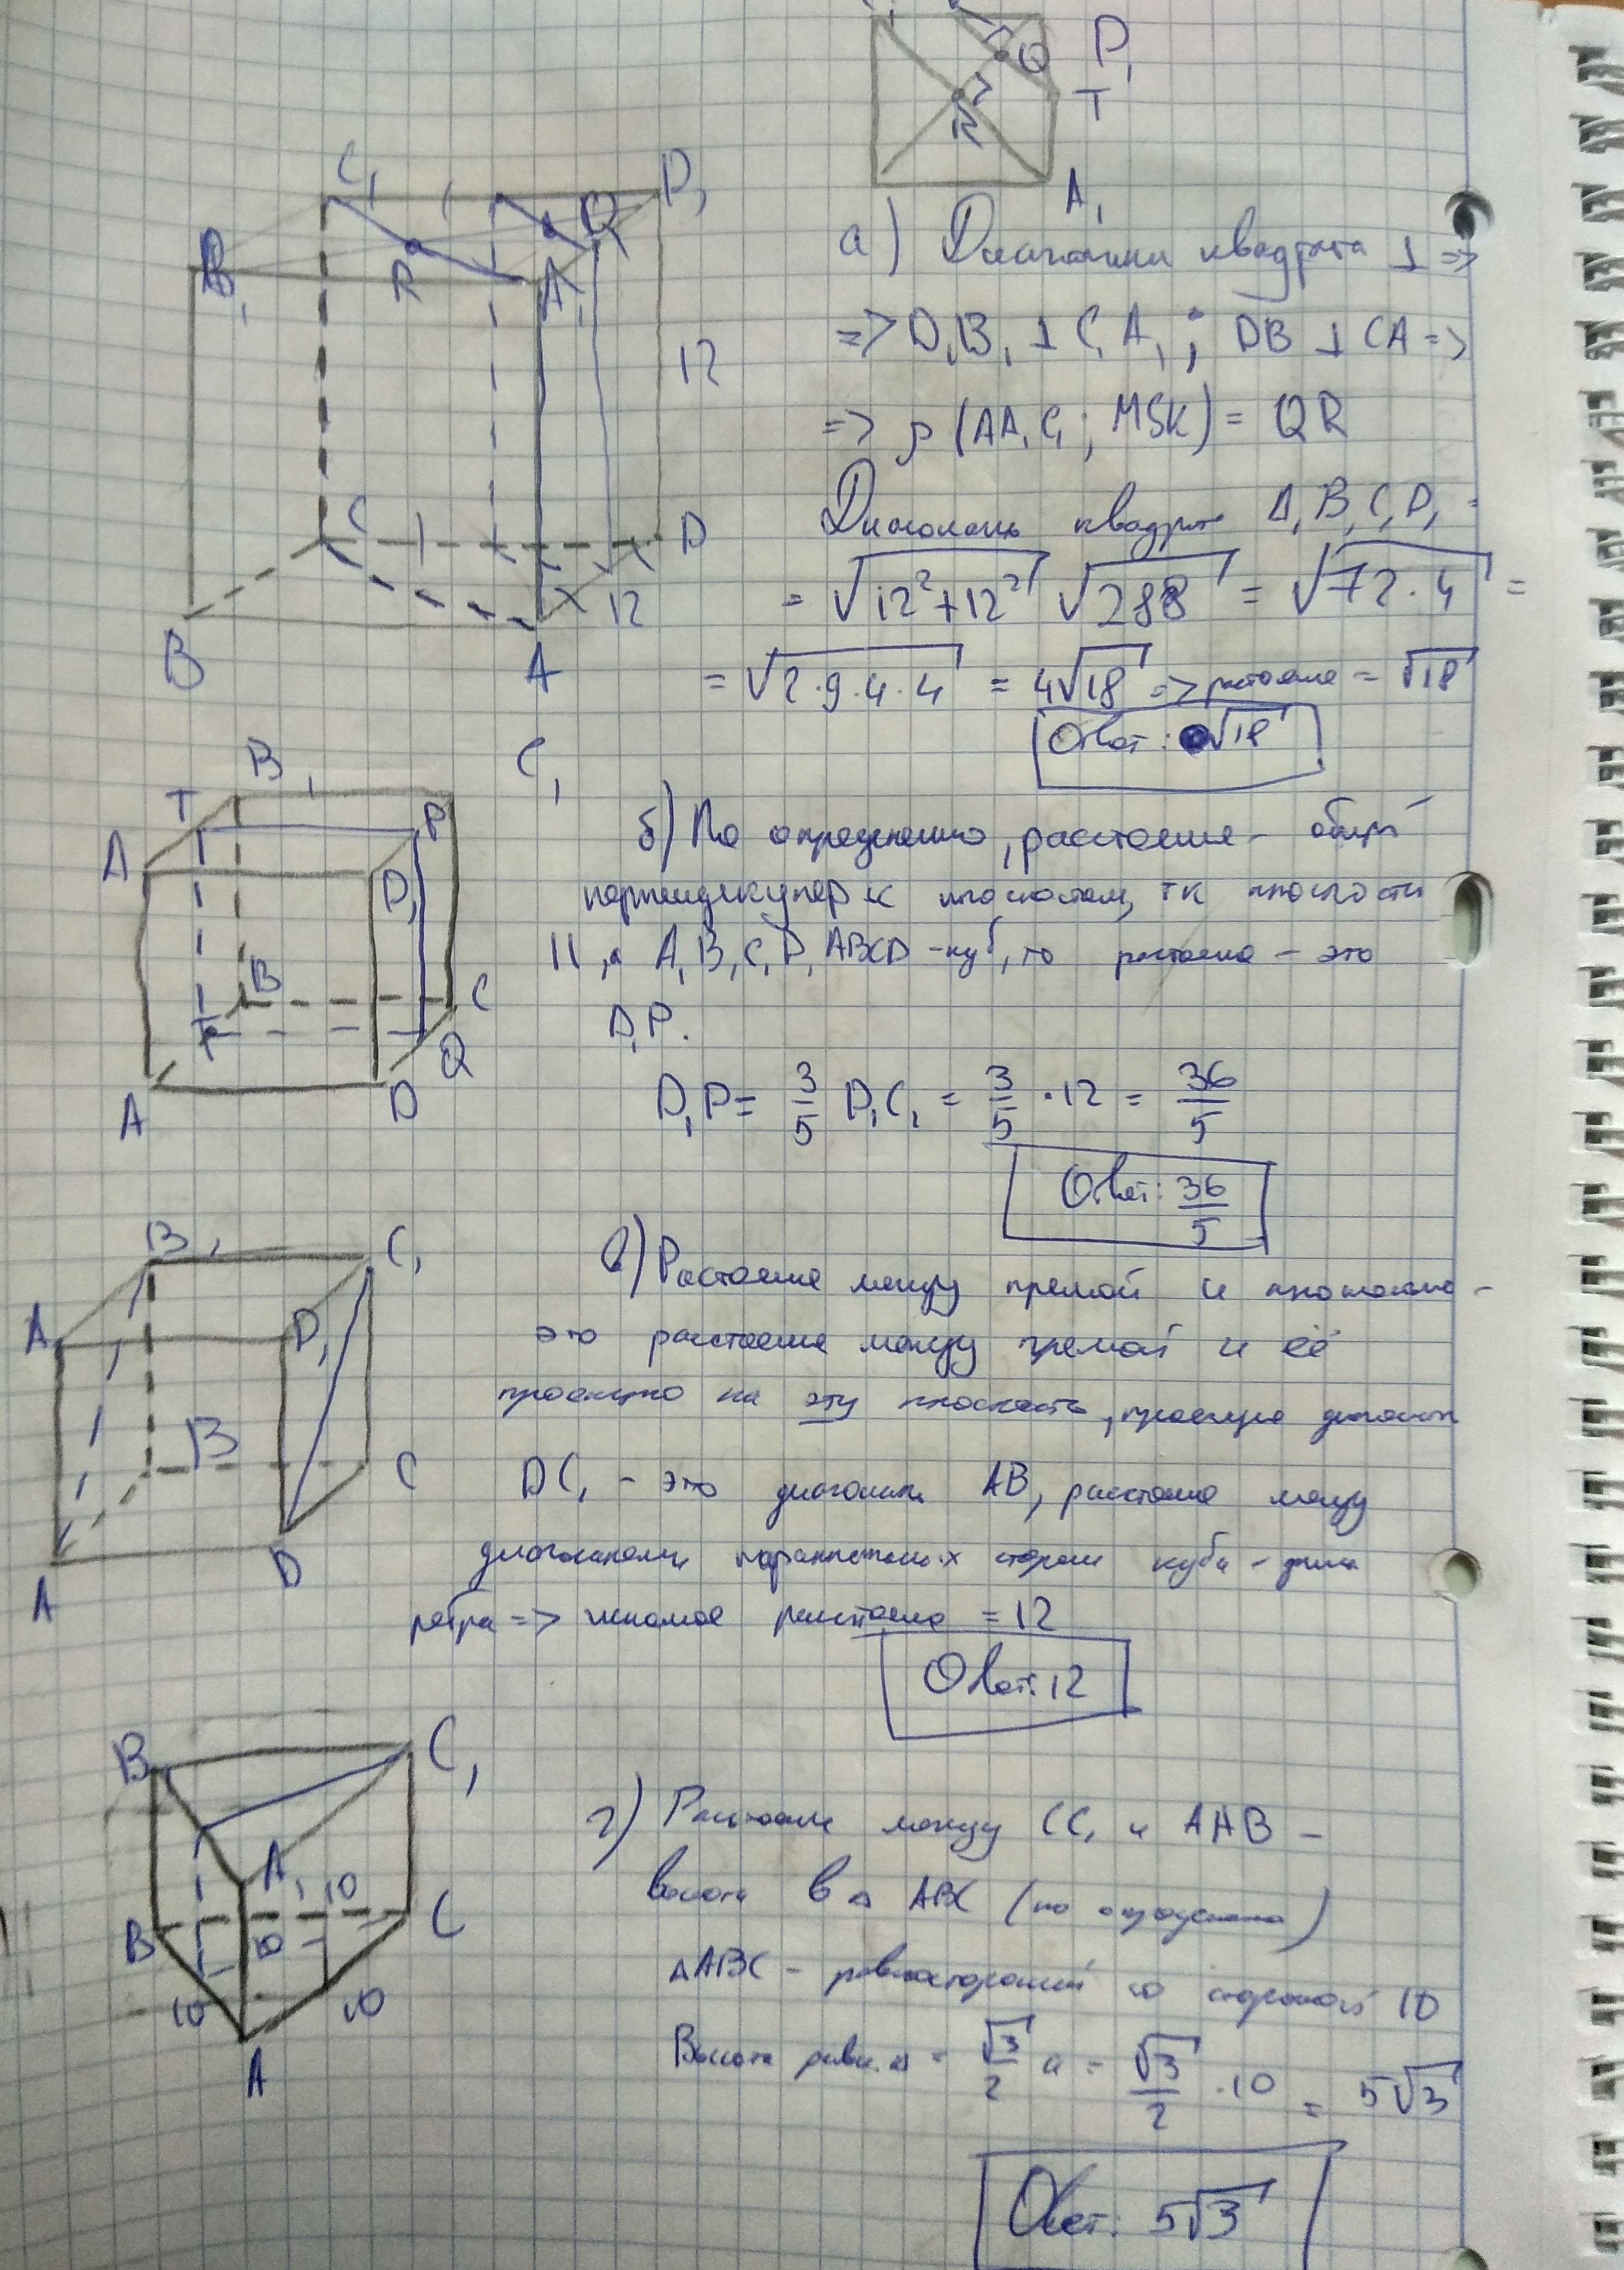 Q
D₁
T
R
A₁
C₁
Q
D₁
B₁
R
A₁
12
C
D
12
B
A
а) Диагонали квадрата ⊥ =>
=> D₁B₁ ⊥ C₁A₁; DB ⊥ CA =>
=> ρ(AA₁C₁; MSK) = QR
Диагональ квадрата A₁B₁C₁D₁ =
= √(12²+12²) √288 = √(72·4) =
= √(2·9·4·4) = 4√18 => растояние = √18
Ответ: √18
B₁
C₁
T
P
A
D₁
B
C
T
Q
A
D
б) По определению, расстояние - общий
перпендикуляр к плоскостям, тк плоскости
||, а A₁B₁C₁D₁ABCD - куб, то растояние - это
D₁P.
D₁P = 3/5 D₁C₁ = 3/5 · 12 = 36/5
Ответ: 36/5
B₁
C₁
A₁
D₁
B
C
A
D
в) Растояние между прямой и плоскостью -
это растояние между прямой и её
проекцию на эту плоскость, проекция диагонали
DC₁ - это диагональ AB₁, растояние между
диагоналями параллельных сторон куба - длина
ребра => искомое растояние = 12
Ответ: 12
B
C₁
A₁
10
B
10
C
10
10
A
г) Растояние между CC₁ и AA₁B -
высота в △ ABC (по определению)
△ABC - равносторонний со стороной 10
Высота равн. △ = √3/2 a = √3/2 · 10 = 5√3
Ответ: 5√3